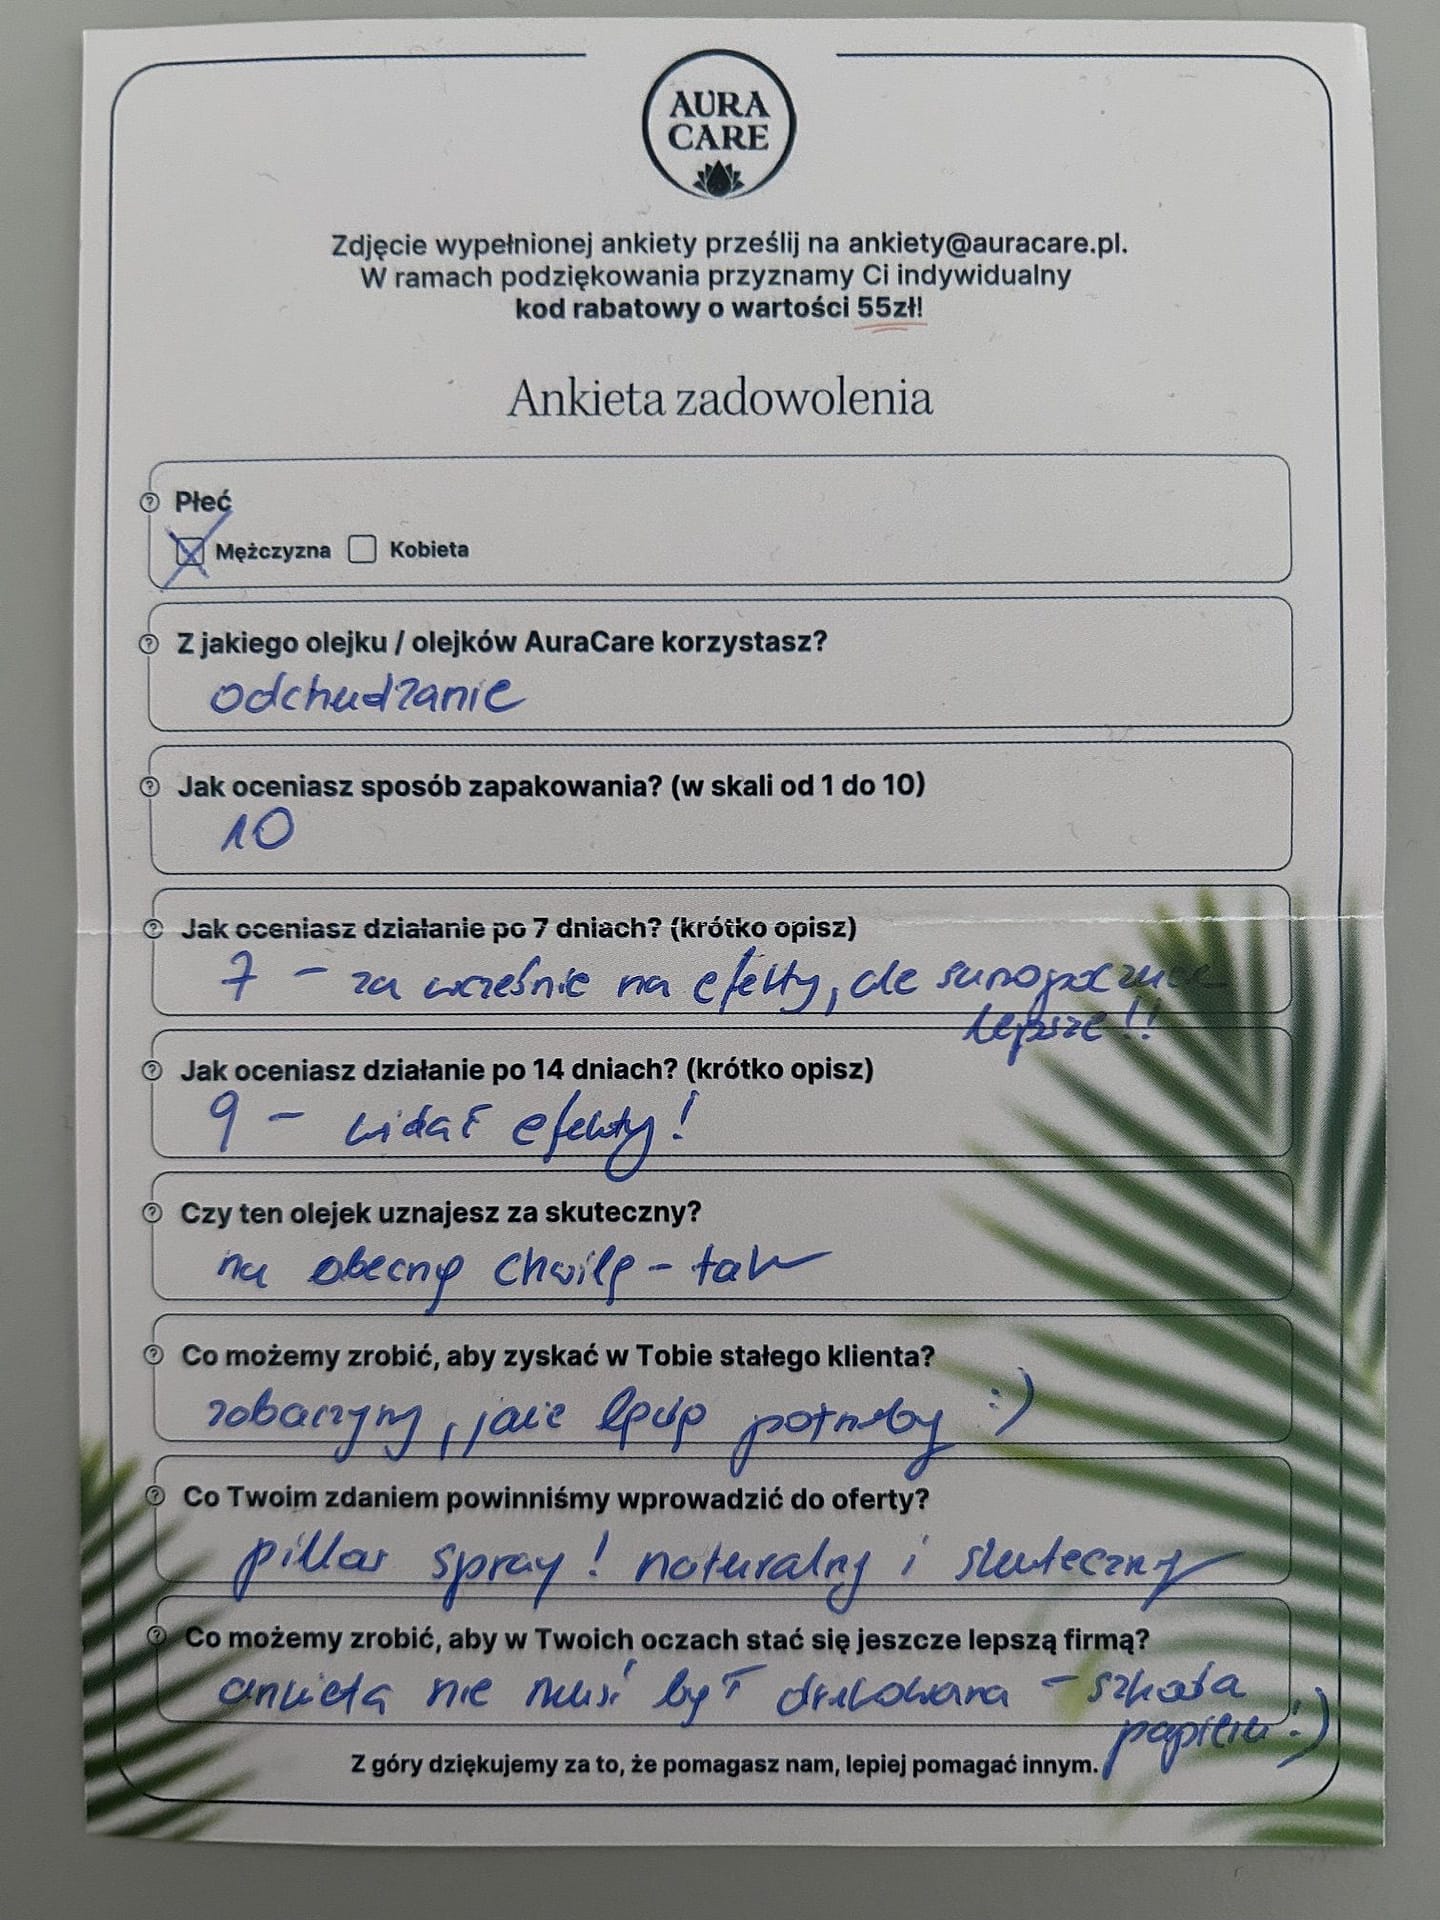 AURA
CARE
Zdjęcie wypełnionej ankiety prześlij na ankiety@auracare.pl.
W ramach podziękowania przyznamy Ci indywidualny
kod rabatowy o wartości 55zł!
Ankieta zadowolenia
Płeć
Mężczyzna Kobieta
Z jakiego olejku / olejków AuraCare korzystasz?
odchudzanie
Jak oceniasz sposób zapakowania? (w skali od 1 do 10)
10
Jak oceniasz działanie po 7 dniach? (krótko opisz)
7 - za wcześnie na efekty, ale samopoczucie
lepsze!!
Jak oceniasz działanie po 14 dniach? (krótko opisz)
9 - widać efekty!
Czy ten olejek uznajesz za skuteczny?
na obecną chwilę - tak
Co możemy zrobić, aby zyskać w Tobie stałego klienta?
zobaczymy, jakie będą potrzeby :)
Co Twoim zdaniem powinniśmy wprowadzić do oferty?
pillow spray! naturalny i skuteczny
Co możemy zrobić, aby w Twoich oczach stać się jeszcze lepszą firmą?
ankieta nie musi być drukowana - szkoda
papieru :)
Z góry dziękujemy za to, że pomagasz nam, lepiej pomagać innym.